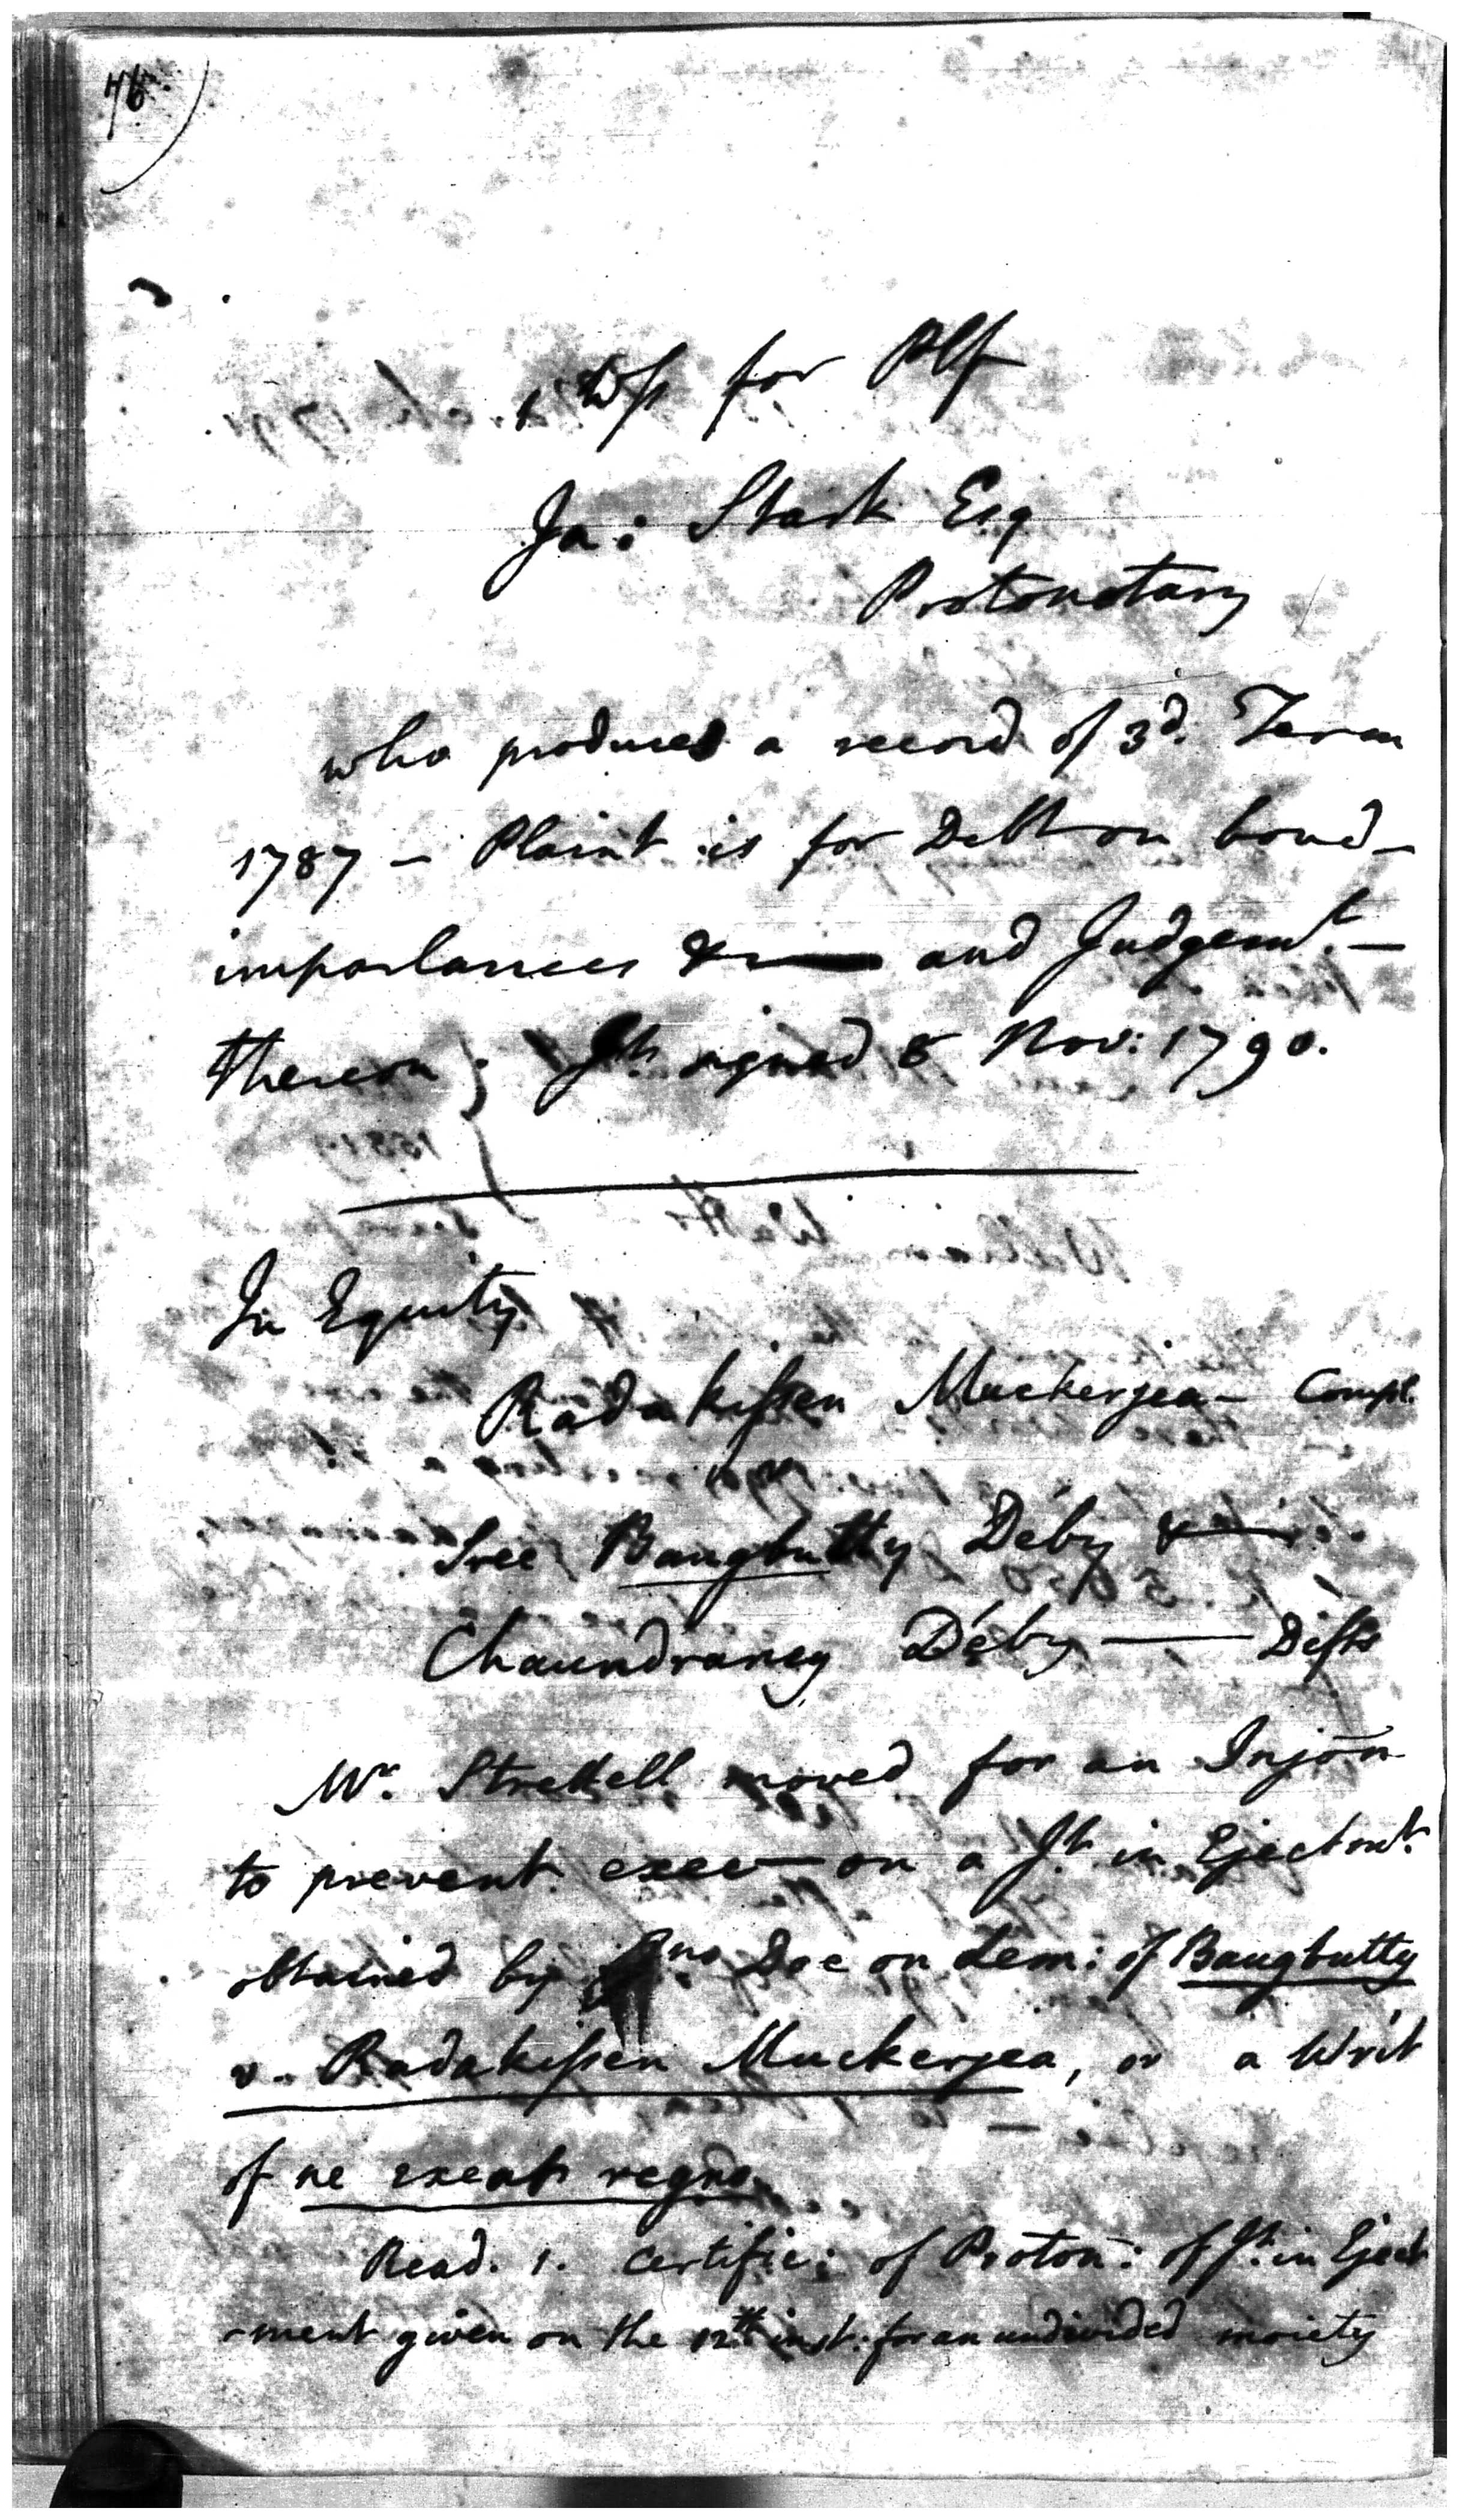 76
1 Wss for Plf
Ja: Stark Esq
Protonotary
who produces a record of 3d. Term
1787 – Plaint is for Debt on bond –
imparlances & and Judgemt. –
thereon; Jt. signed 8 Nov: 1790.
In Equity
Radakissen Muckerjea – Compl.
v
Sree Baugbutty Deby &
Chaundraney Deby — Defts
Mr. Strettell moved for an Injon
to prevent exec— on a Jt. in Ejectmt.
obtained by Jno. Doe on dem: of Baugbutty
v. Radakissen Muckerjea, or a Writ
of ne exeat regno.
Read. 1. Certific: of Proton: of Jt. in Eject
-ment given on the 12th inst: for an undivided moiety